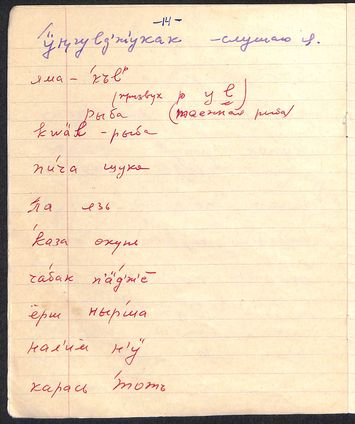 -14-
ӱңгувд'жукак -слушаю я.
яма - къв"
(призвук р у в)
рыба (таежная рыба)
kwäl - рыба
пи́ча щука
па язь
каза окунь
чабак п'äд'ж'ё
ёрш нырма
нали́м н'ÿ
карась тоть